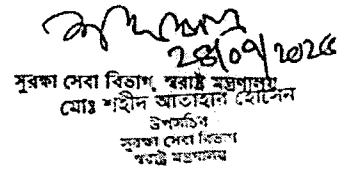 ২৪/০৭/২০২৫
সুরক্ষা সেবা বিভাগ, স্বরাষ্ট্র মন্ত্রণালয়
মোঃ শহীদ আতাহার হোসেন
উপসচিব
সুরক্ষা সেবা বিভাগ
স্বরাষ্ট্র মন্ত্রণালয়